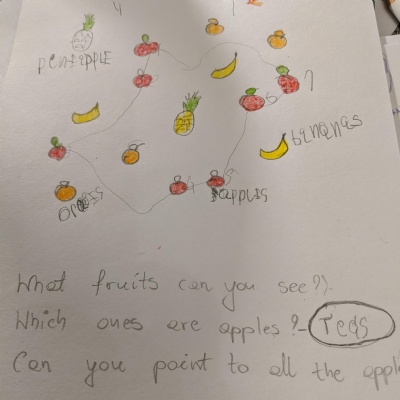 penEAPPLE
7
6
bananas
apples
What fruits can you see?
Which ones are apples?- reds
Can you point to all the appl